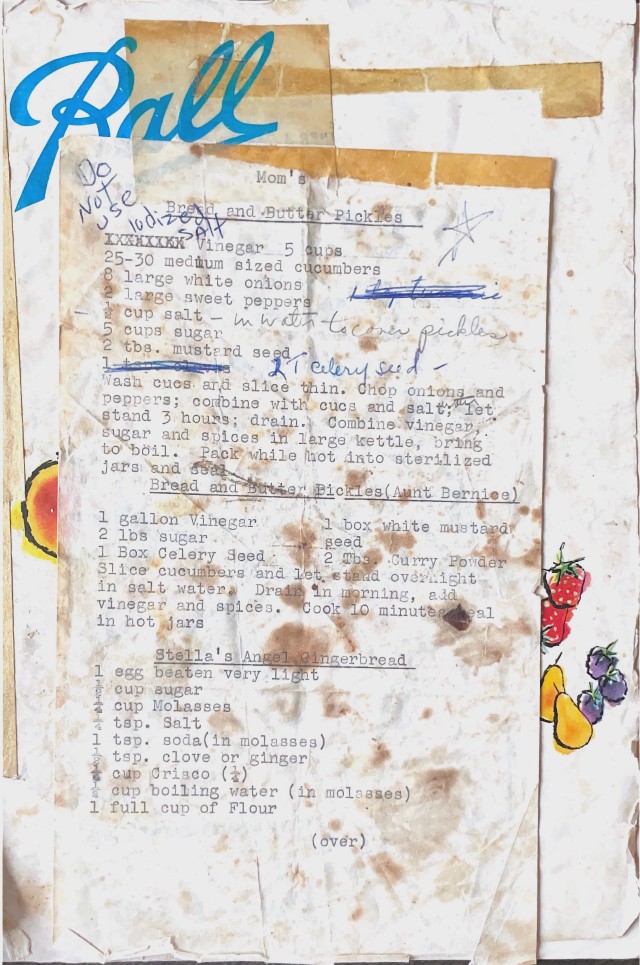 Ball
Do
Not
use
iodized
SALT
Mom's
Bread and Butter Pickles
XXXXXXXX Vinegar 5 cups
25-30 medium sized cucumbers
8 large white onions
2 large sweet peppers
½ cup salt — in water to cover pickles
5 cups sugar
2 tbs. mustard seed
1 2T celery seed –
Wash cucs and slice thin. Chop onions and
peppers; combine with cucs and salt; let
stand 3 hours; drain. Combine vinegar,
sugar and spices in large kettle, bring
to boil. Pack while hot into sterilized
jars and seal
Bread and Butter Pickles(Aunt Bernice)
1 gallon Vinegar 1 box white mustard
2 lbs sugar seed
1 Box Celery Seed 2 Tbs. Curry Powder
Slice cucumbers and let stand overnight
in salt water. Drain in morning, add
vinegar and spices. Cook 10 minutes seal
in hot jars
Stella's Angel Gingerbread
1 egg beaten very light
cup sugar
cup Molasses
tsp. Salt
1 tsp. soda(in molasses)
tsp. clove or ginger
cup Crisco
cup boiling water (in molasses)
1 full cup of Flour
(over)